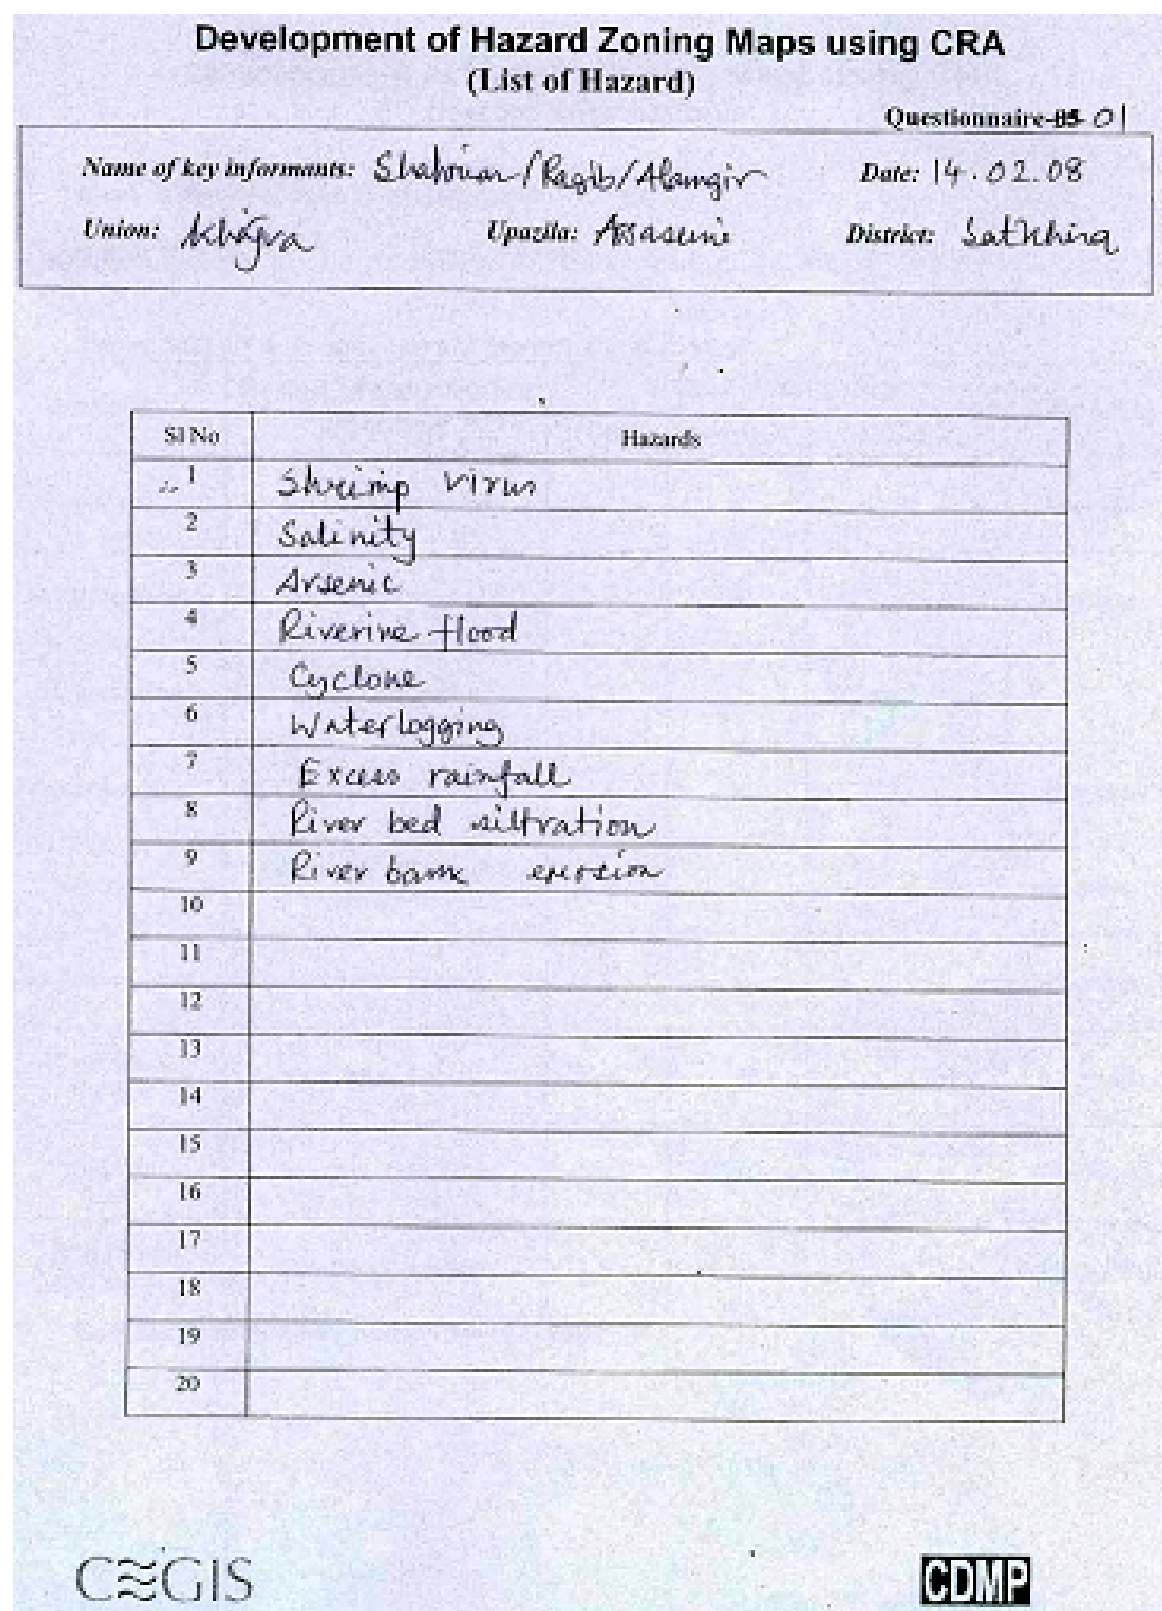 Development of Hazard Zoning Maps using CRA
(List of Hazard)
Questionnaire-05 01
Name of key informants: Shahriar/Ragib/Alamgir Date: 14.02.08
Union: Upazila: Assasuni District: Satkhira
Sl No Hazards
1 Shrimp virus
2 Salinity
3 Arsenic
4 Riverine flood
5 Cyclone
6 Waterlogging
7 Excess rainfall
8 River bed siltration
9 River bank erosion
10
11
12
13
14
15
16
17
18
19
20
CEGIS CDMP